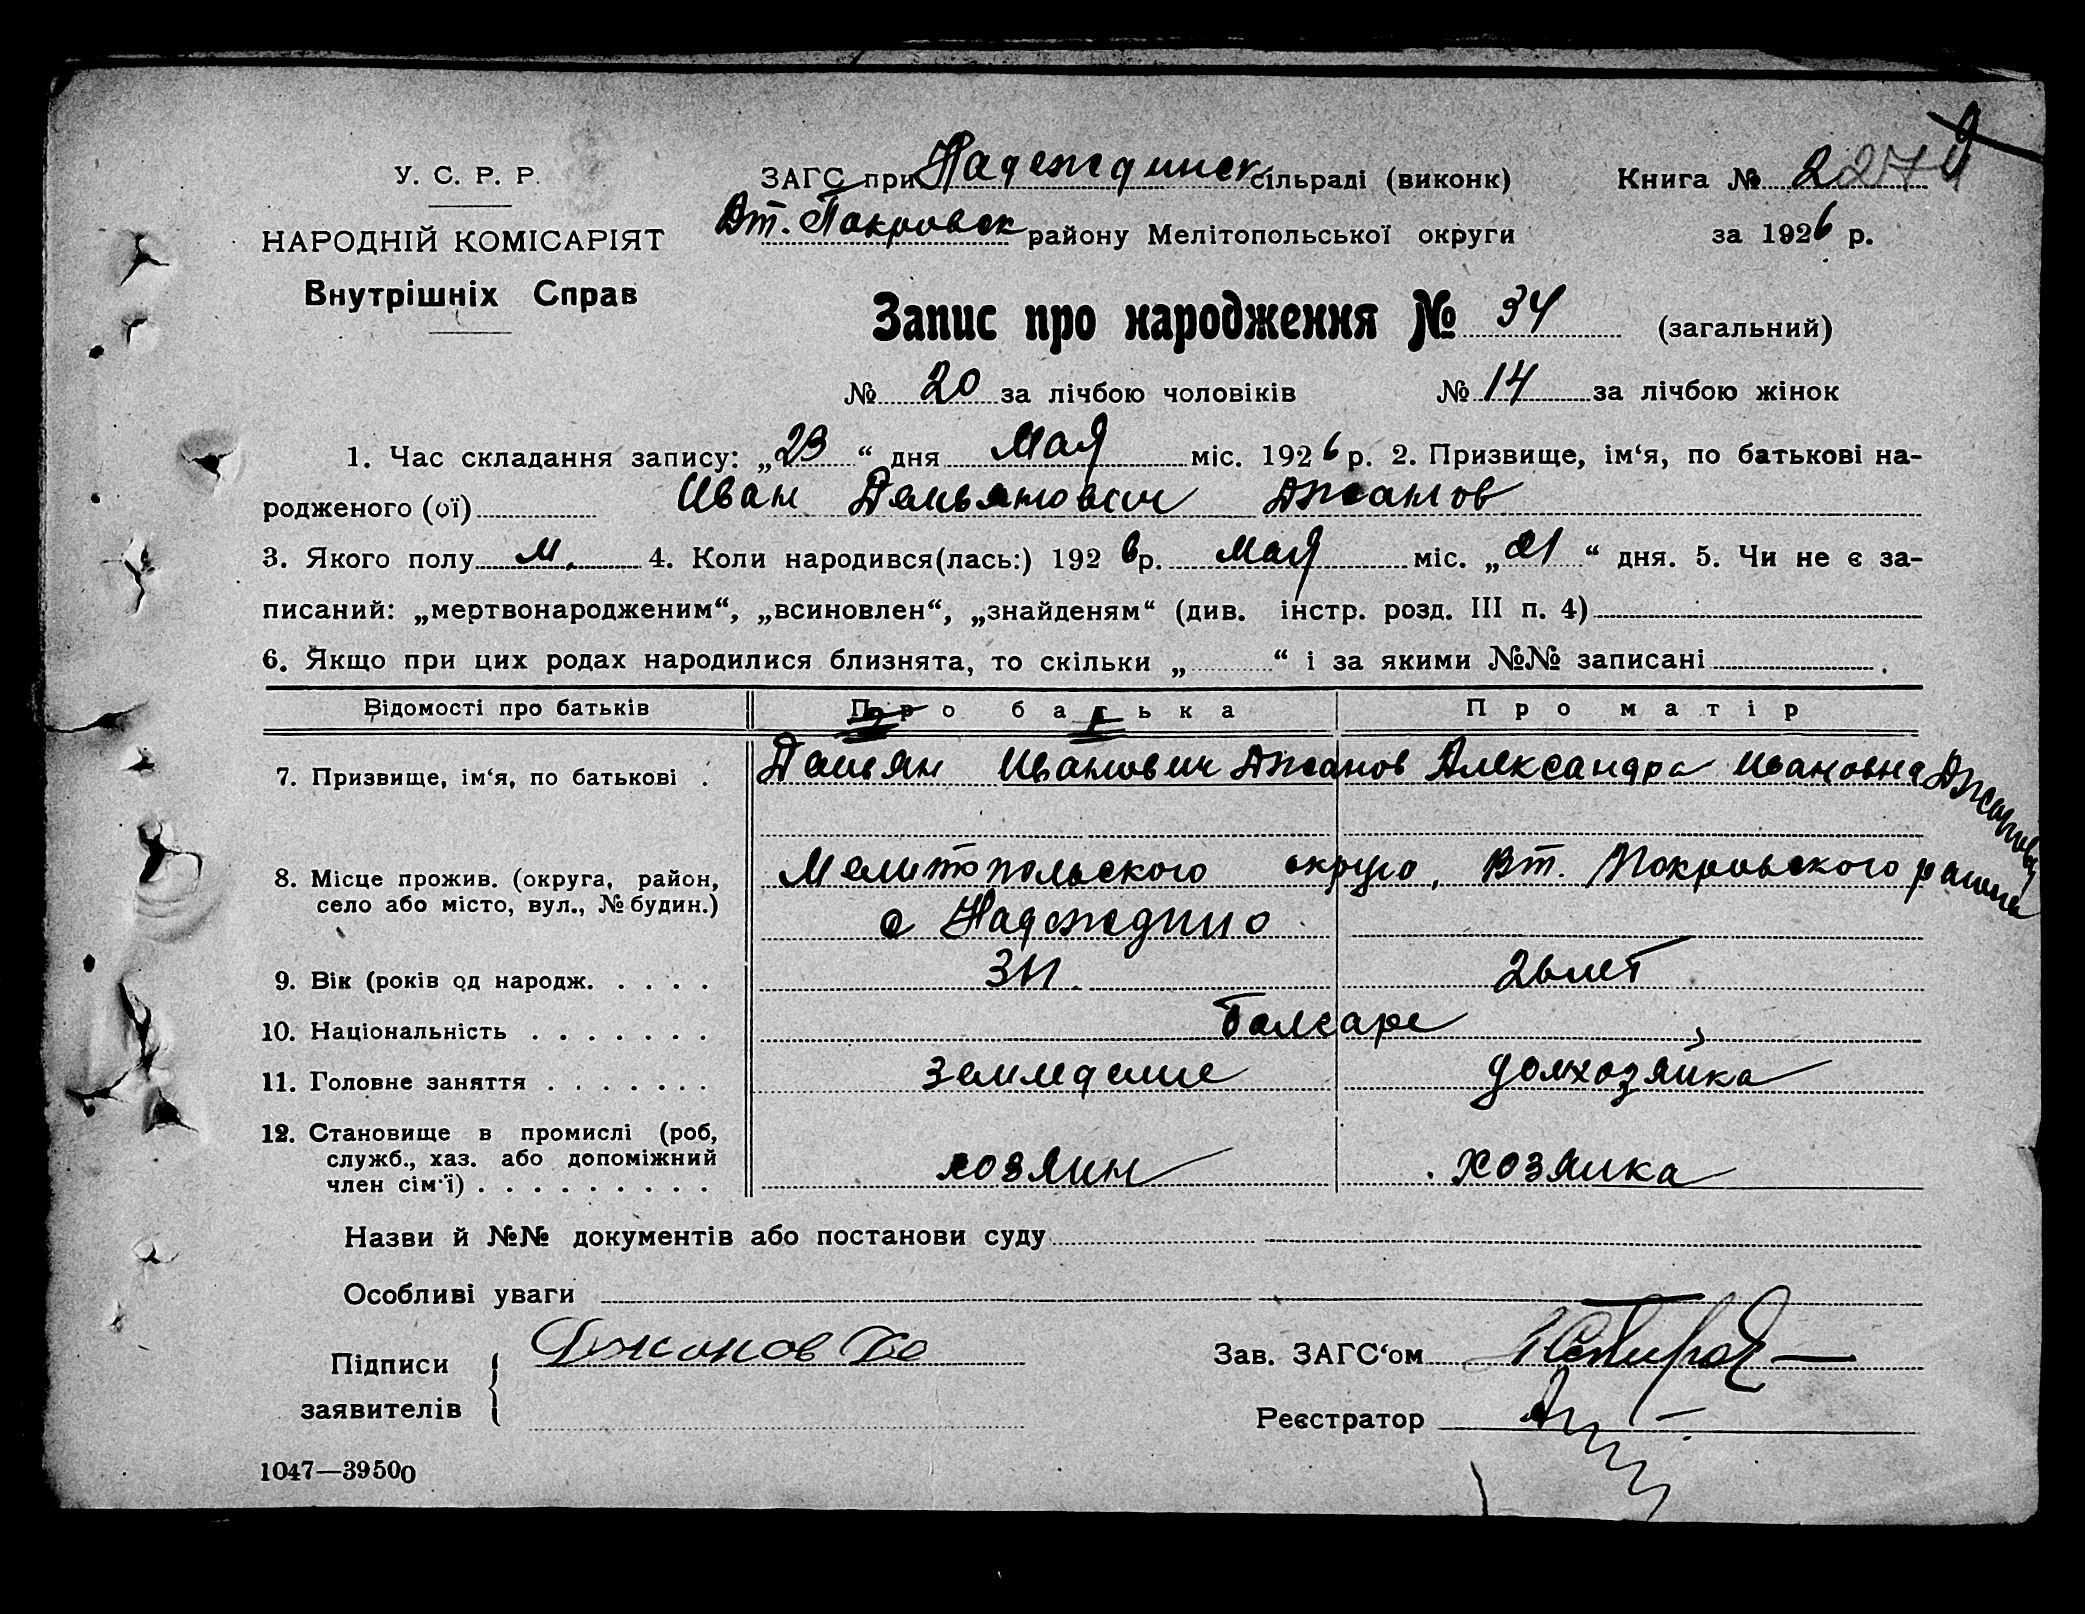 У. С. Р. Р.
НАРОДНІЙ КОМІСАРІЯТ
Внутрішніх Справ
ЗАГС при Надеждинск сільраді (виконк)
Вт. Покровск району Мелітопольської округи
Книга № 2
за 1926 р.
Запис про народження № 34 (загальний)
№ 20 за лічбою чоловіків № 14 за лічбою жінок
1. Час складання запису: „23“ дня Мая міс. 1926 р. 2. Призвище, ім‘я, по батькові на-
родженого (ої) Иван Демьянович Джанов
3. Якого полу м. 4. Коли народився(лась:) 1926 р. Мая міс. „21“ дня. 5. Чи не є за-
писаний: „мертвонародженим“, „всиновлен“, „знайденям“ (див. інстр. розд. III п. 4)
6. Якщо при цих родах народилися близнята, то скільки „ “ і за якими №№ записані .
Відомості про батьків Про батька Про матір
7. Призвище, ім‘я, по батькові . Дамьян Иванович Джанов Александра Ивановна Джанова
8. Місце прожив. (округа, район, Мелитопольского округа, Вт. Покровского района
село або місто, вул., № будин.) с Надеждино
9. Вік (років од народж. . . . . 26 лет
10. Національність . . . . . . .
11. Головне заняття . . . . . . . земледелие домхозяйка
12. Становище в промислі (роб,
служб., хаз. або допоміжний хозяин хозяика
член сім‘ї) . . . . . . . . .
Назви й №№ документів або постанови суду
Особливі уваги
Підписи Джанов
заявителів
Зав. ЗАГС‘ом
Реєстратор
1047—39500